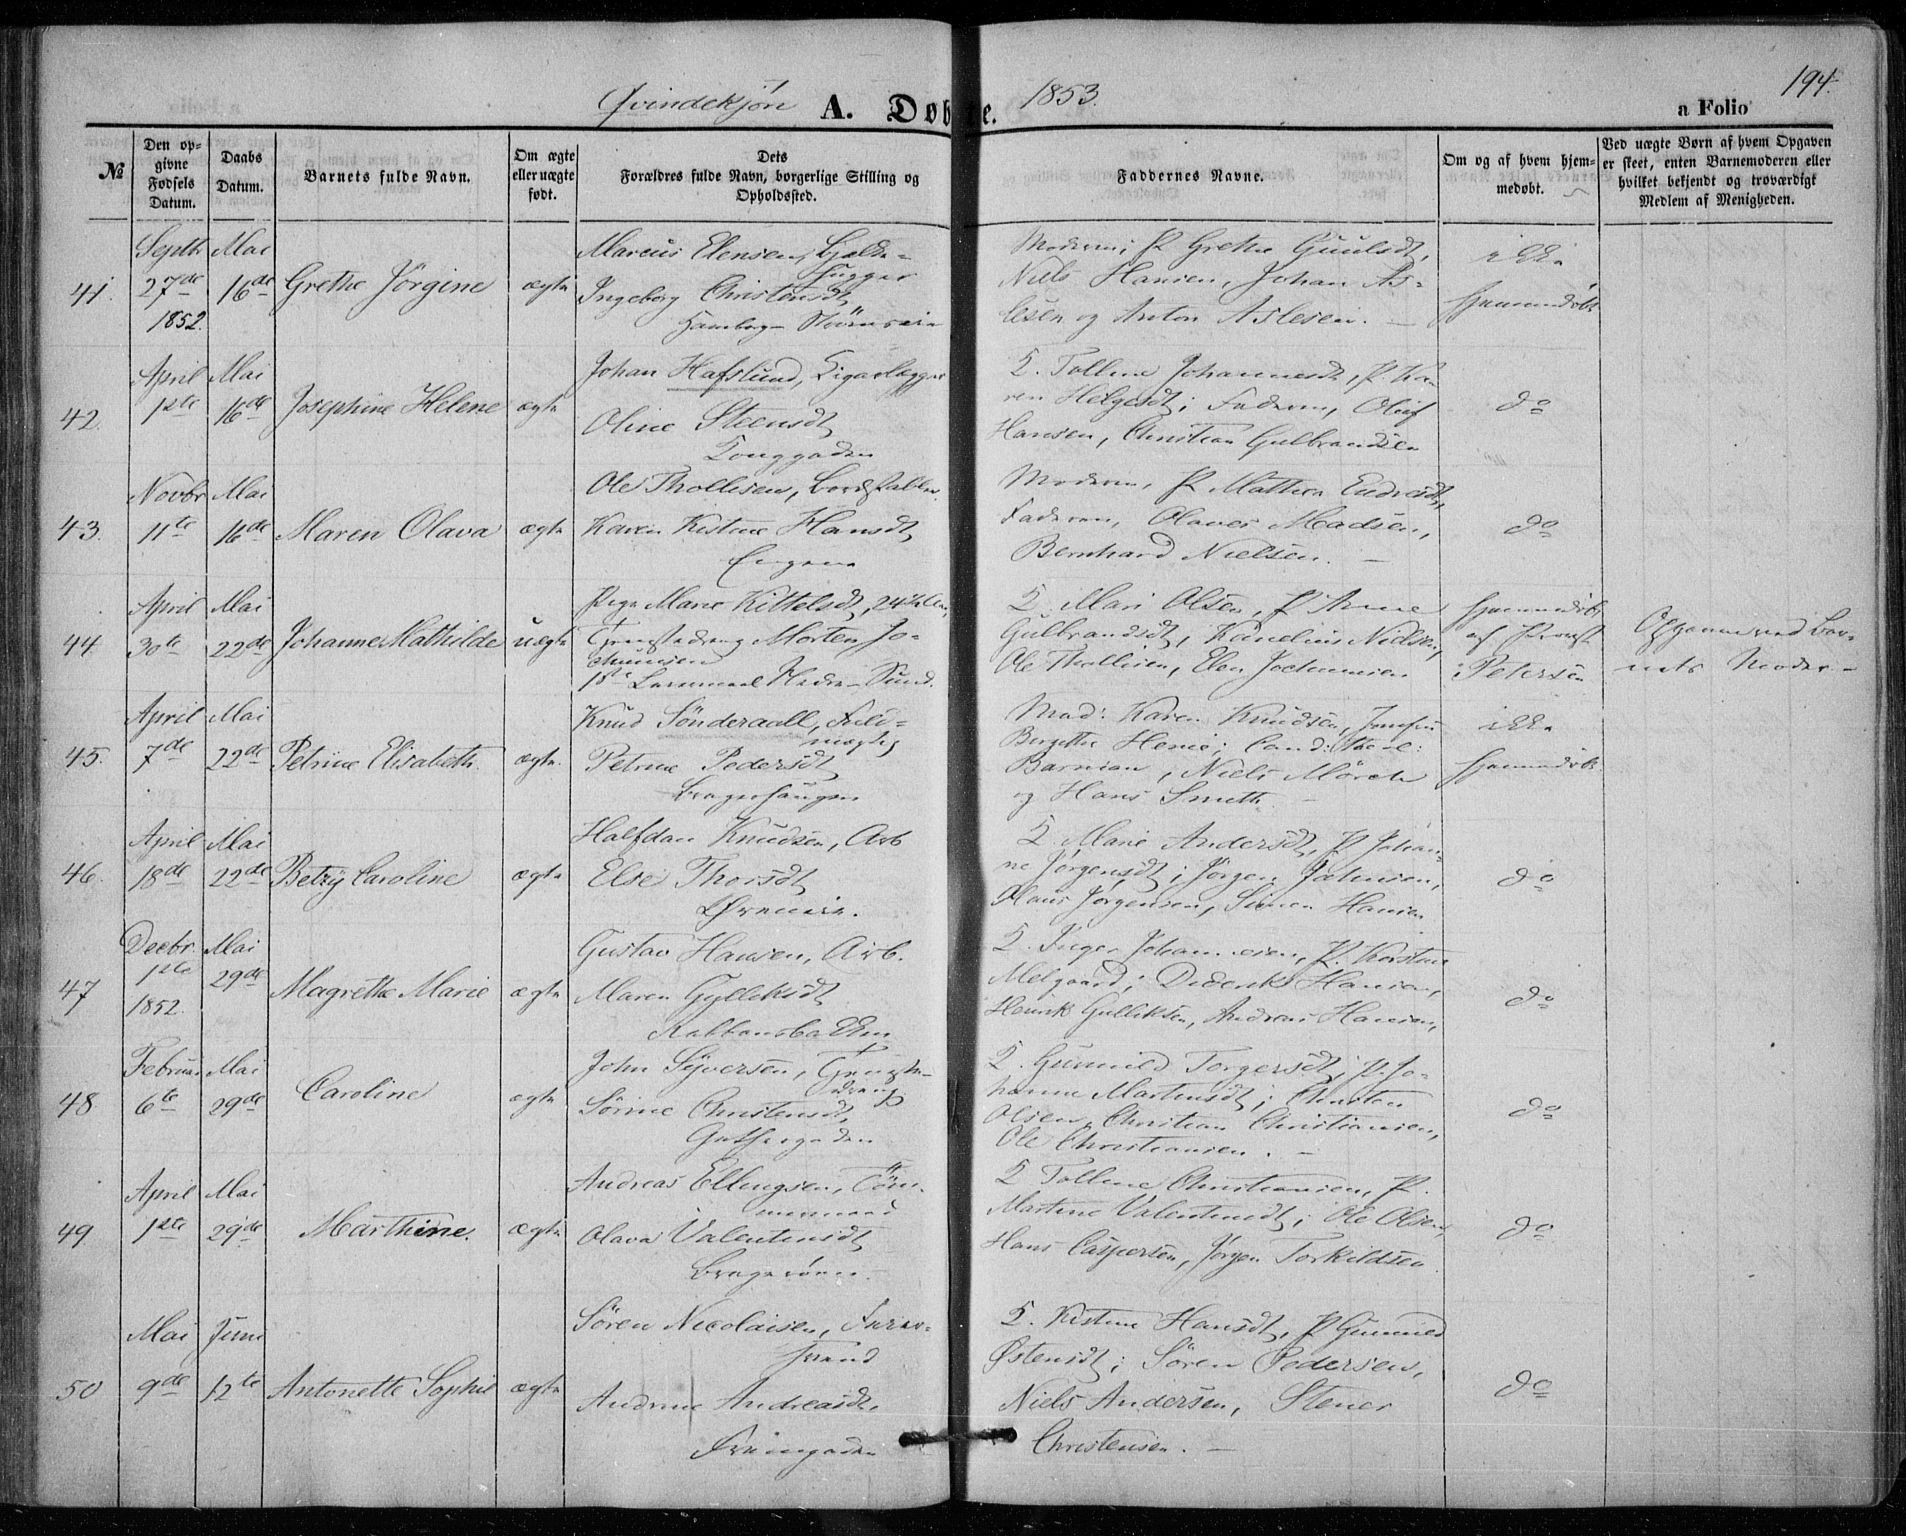 Qvindekjön A. Døbte. 1853. a Folio 194.
№
Den opgivne Fødsels Datum.
Daabs Datum.
Barnets fulde Navn.
Om ægte eller uægte født.
Dets Forældres fulde Navn, borgerlige Stilling og Opholdssted.
Faddernes Navne.
Om og af hvem hjemmedøbt.
Ved uægte Børn af hvem Opgaven er skeet, enten Barnemoderen eller hvilket bekjendt og troværdigt Medlem af Menigheden.
41. Septbr 27de 1852. Mai 16de Grethe Jörgine ægte
Marcus Elensen, Bjelkehugger
Ingeborg Christensdt,
Moderen; P. Grethe Guulsdt,
Niels Hansen, Johan Aslesen og Anton Aslesen. —
ikke hjemmedøbt
42. April 1ste Mai 16de Josephine Helene ægte
Johan Hafslund,
Oline Steensdt
Konggaden
Q. Tolline Johannesdt, P. Karen Helgesdt; Faderen, Oluf
Hansen, Christian Gulbrandsen
do
43. Novbr 11te Mai 16de Maren Olava ægte
Ole Thollisen, Bordstabler
Karen Kistine Hansdt
Engene
Moderen, P. Mathea Endresdt,
Faderen, Olaves Madsen,
Bernhard Nielsen. —
do
44 April 30te Mai 22de Johanne Mathilde uægte
Pige Marie Kittelsdt, 24
Morten Jochumsen
Q. Mari Olsen, P. Anne
Gulbrandsdt, Kornelius Nielsen,
Ole Thollisen, Elen Jochumsen
hjemmedøbt af Provst Petersen
Opgivne ved Barnets Moder —
45. April 7de Mai 22de Petrine Elisabeth. ægte.
Knud Sönderaall, Fuldmægtig
Petrine Pedersdt
Bragerhaugen
Mad: Karen Knudsen, Jomfru
Bergethe Henie; Cand: theol:
Barman, Niels Mörch
og Hans Smith. —
ikke hjemmedøbt.
46. April 18de Mai 22de Betzÿ Caroline ægte
Halfdan Knudsen, Arb
Else Thorsdt
Q. Marie Andersdt, P. Johanne Jørgensdt; Jørgen Jochumsen,
Hans Jørgensen, Simen Hansen
do
47 Decbr. 1ste 1852. Mai 29de Magrethe Marie ægte
Gustav Hansen, Arb.
Maren Gulliksdt
Q. Inger Johannesen, P. Kirstine
Melgaard; Diderik Hansen,
Henrik Gulliksen, Andreas Hansen,
do
48 Februar 6te Mai 29de Caroline ægte
John Syversen,
Sörine Christensdt,
Q. Gunnild Torgersdt; P. Johanne Martinsdt; Christen
Olsen, Christian Christiansen,
Ole Christiansen. —
do
49 April 1ste Mai 29de Marthine. ægte
Andreas Ellingsen, Tömmermand
Olava Valentinsdt
Bragerøen
Q Tolline Christiansen, P.
Martine Valentinsdt; Ole Olsen,
Hans Caspersen, Jörgen Torkildsen
do
50 Mai 9de Juni 12te Antonette Sophie ægte
Sören Nicolaisen,
Andrine Andreasdt.
Q. Kistine Hansdt, P. Gunnild
Østensdt; Sören Pedersen,
Niels Andersen, Stener
Christensen. —
do